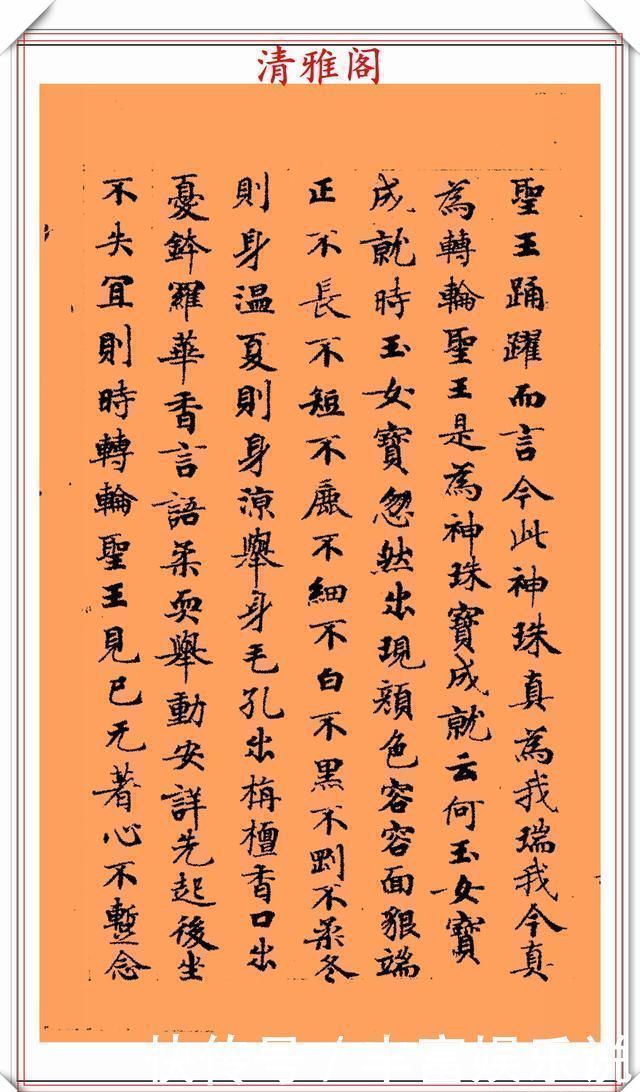 清雅阁
聖王踊躍而言今此神珠真為我瑞我今真
為轉輪聖王是為神珠寶成就云何玉女寶
成就時玉女寶忽然出現顏色容容面貌端
正不長不短不麁不細不白不黑不剛不柔冬
則身温夏則身涼舉身毛孔出栴檀香口出
憂鉢羅華香言語柔耎舉動安詳先起後坐
不失宜則時轉輪聖王見已无著心不蹔念